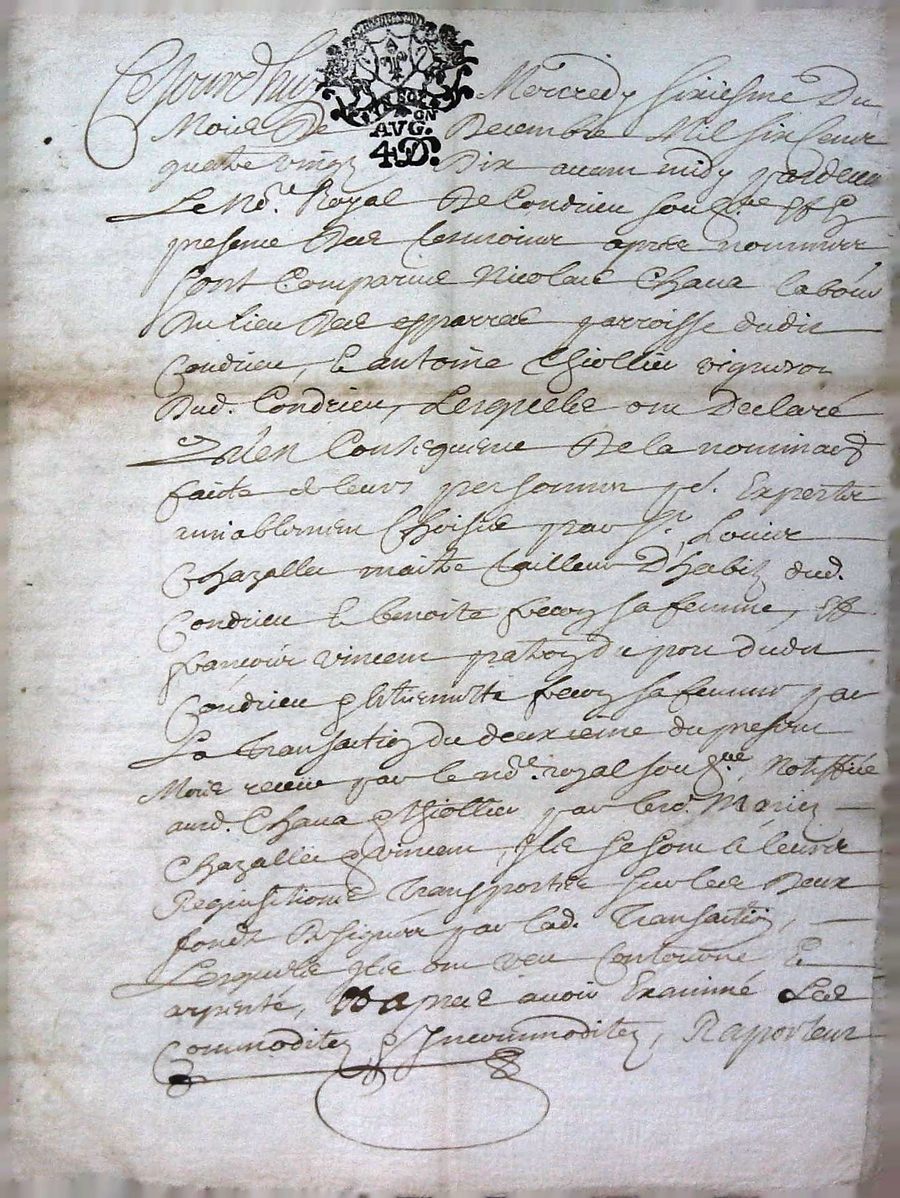 Cejourdhuy Mercredy sixiesme Du
Mois De Decembre Mil six cens
AVG.
4D.
quatre vingt Dix avant midy pardevant
Le No.re Royal De Condrieu soub.ne et
presens Des tesmoins apres nommes
sont Comparus Nicolas Chava labour
Du lieu Des parroisse dudit
Condrieu, & antoine Thiollier vigneron
Dud. Condrieu, Lesquels ont Declaré
qu'en Consequence De la nomination
faicte de leurs personnes p.r Expertz
amiablement Choisis par S.r Louis
Chazallet maitre tailleur D'habitz dud.
Condrieu & benoiste sa femme, et
francois vincent patron du port dudit
Condrieu & sa femme par
La transaction du deuxieme du present
Mois receue par le no.re royal soub.ne Notiffiée
aud. Chava & Thiollier par lesd. Mariez
Chazallet & vincent, Ils se sont à leurs
Requisitions transportés sur les Deux
fonds Designés par lad. Transaction,
Lesquels Ils ont veu Contourné &
arpenté, Et apres avoir Examiné Les
Commoditez & Incommoditez, Raportent